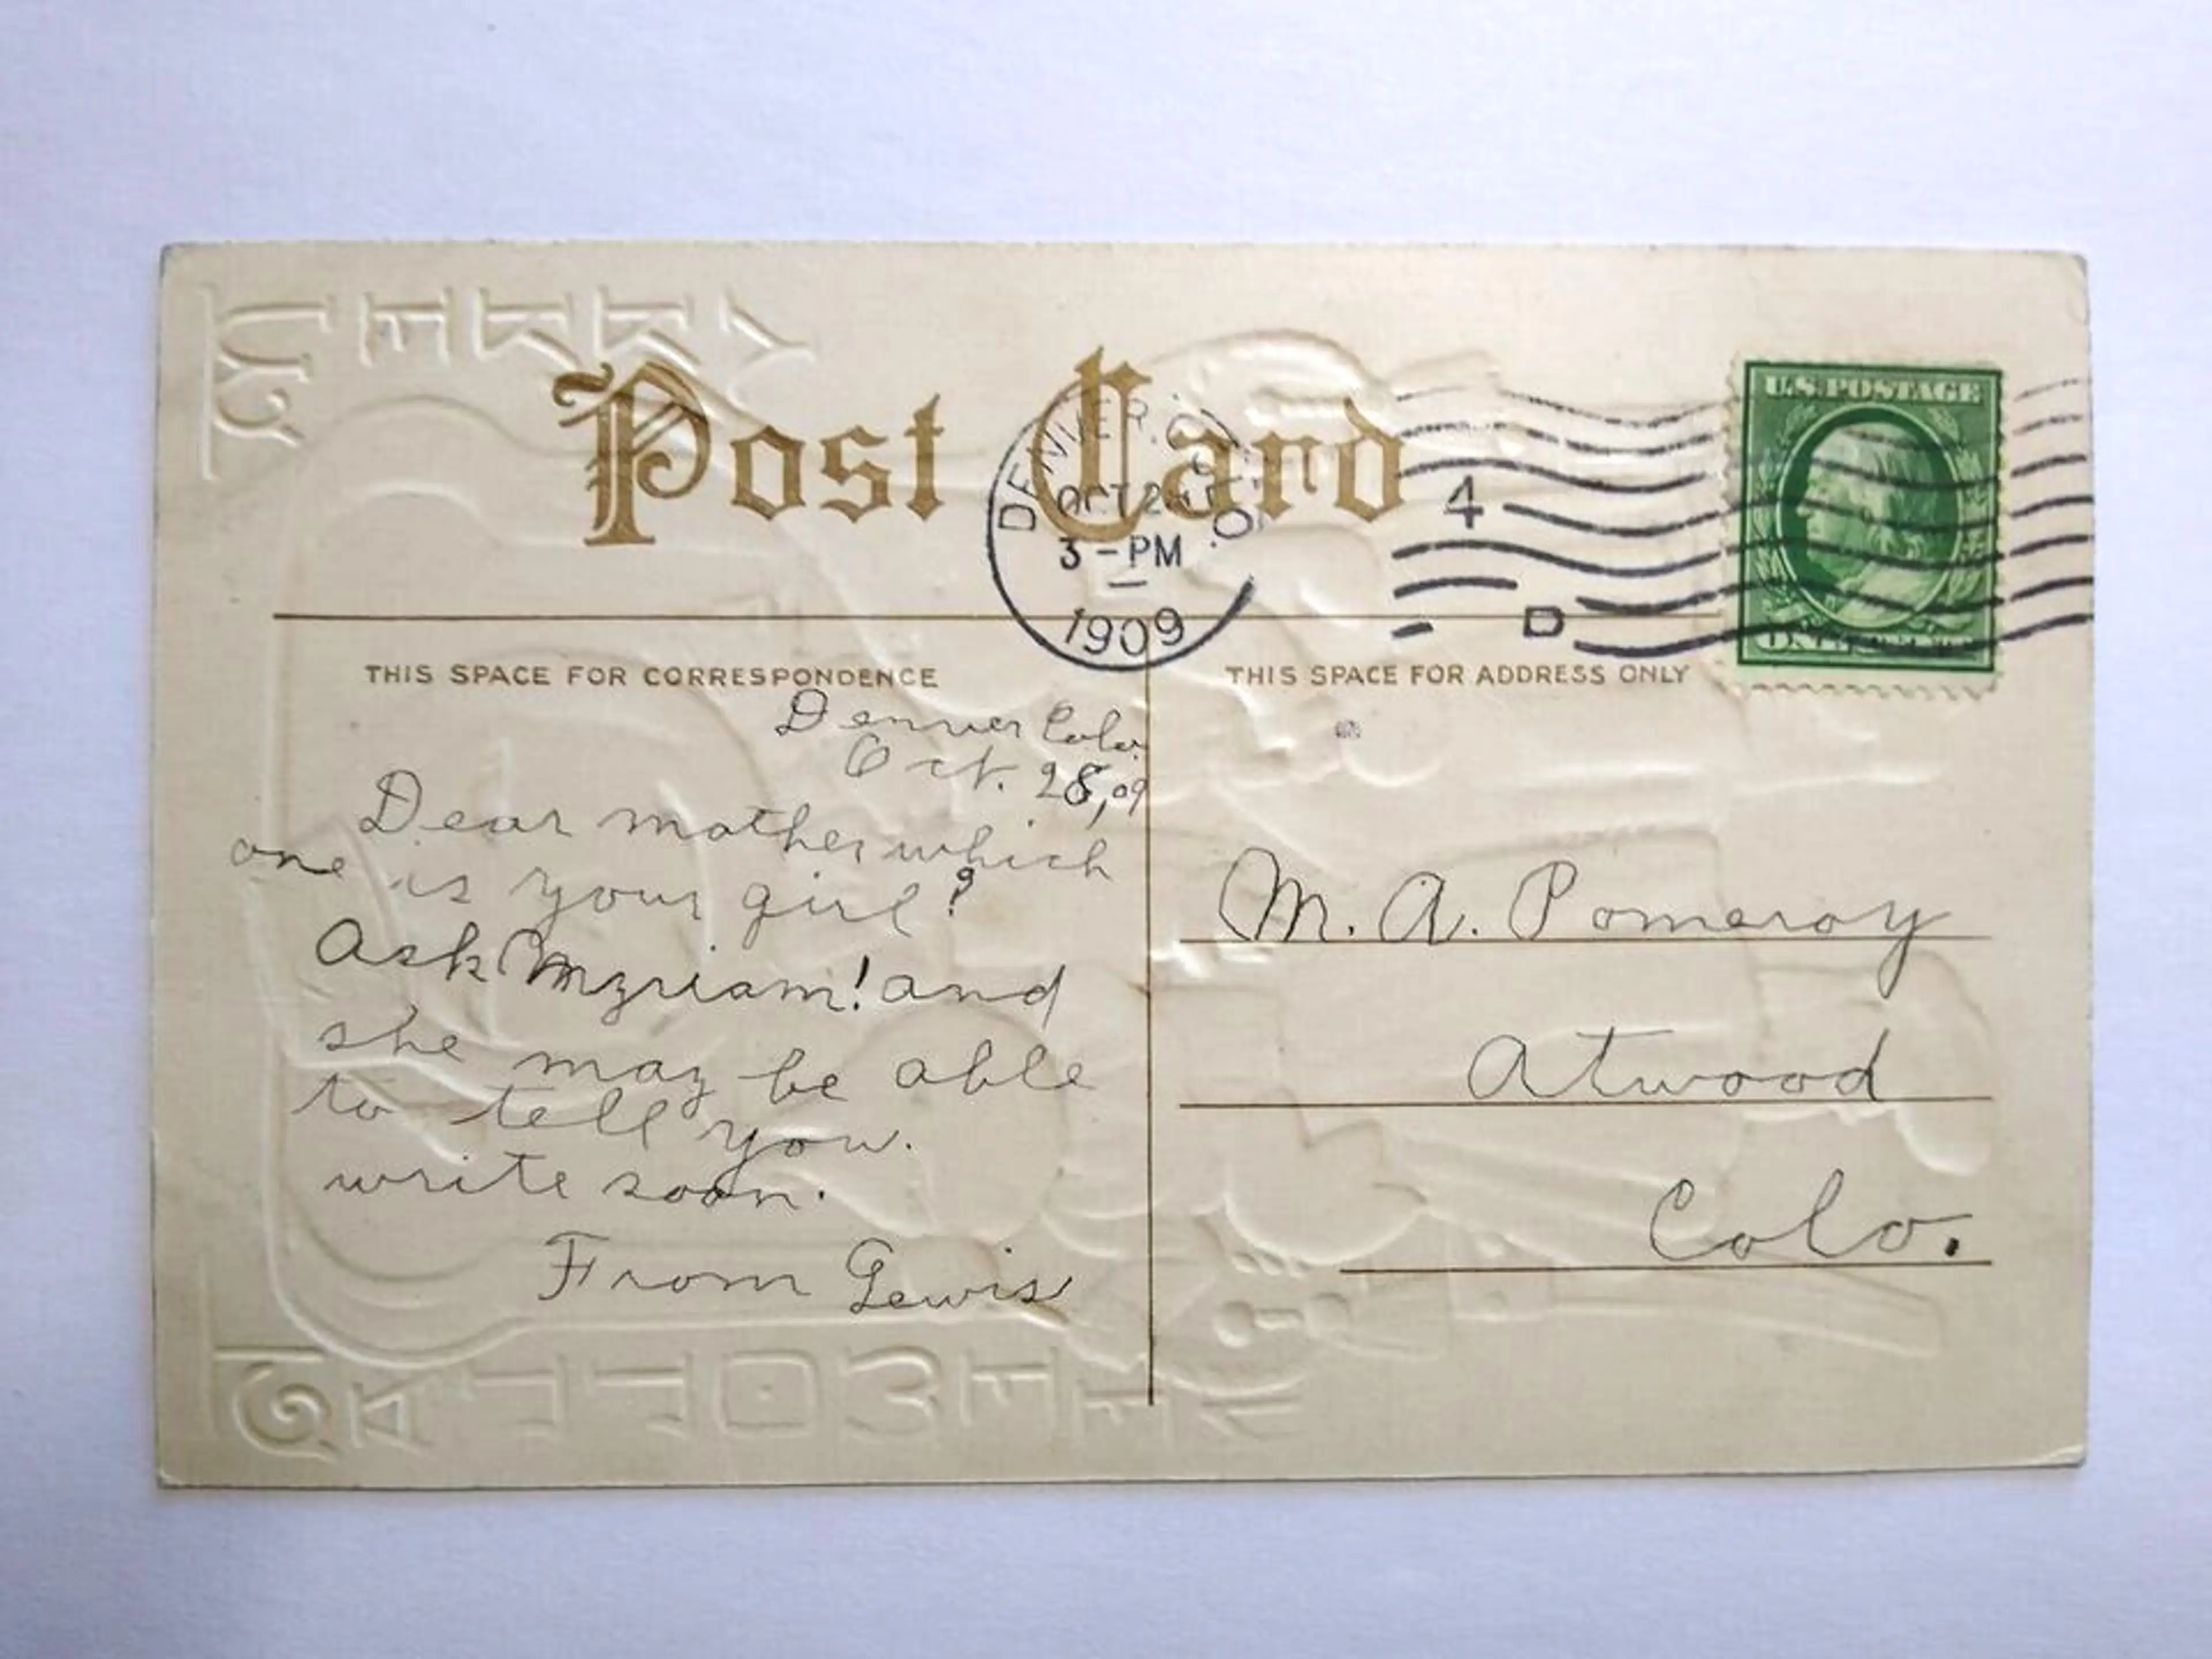 Post Card
DENVER. COLO.
OCT 28
3 - PM
1909
4
D
U.S. POSTAGE
THIS SPACE FOR CORRESPONDENCE
THIS SPACE FOR ADDRESS ONLY
Denver Colo.
Oct. 28, 09
Dear mother which
one is your girl?
Ask Myriam! and
she may be able
to tell you.
write soon.
From Lewis
M. A. Pomeroy
Atwood
Colo.